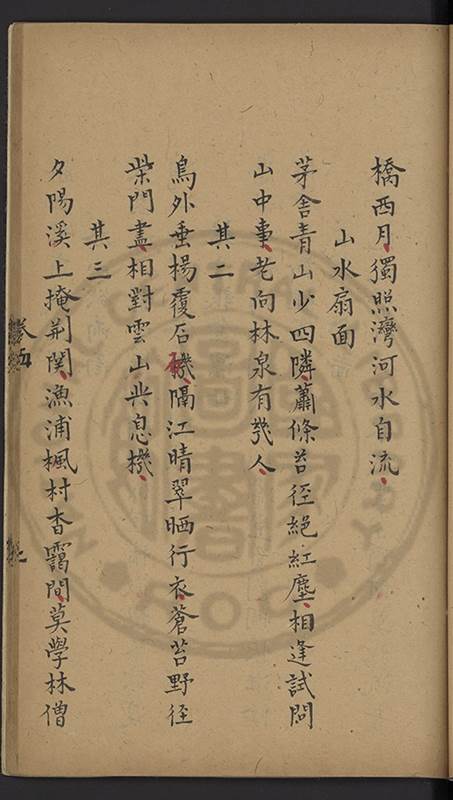 橋西月獨照灣河水自流
山水扇面
茅舍青山少四隣蕭條苔径絕紅塵相逢試問
山中事老向林泉有幾人
其二
鳥外垂楊覆石磯隔江晴翠晒行衣蒼苔野径
柴門盡相對雲山共息機
其三
夕陽溪上掩荆関漁浦楓村杳靄間莫學林僧